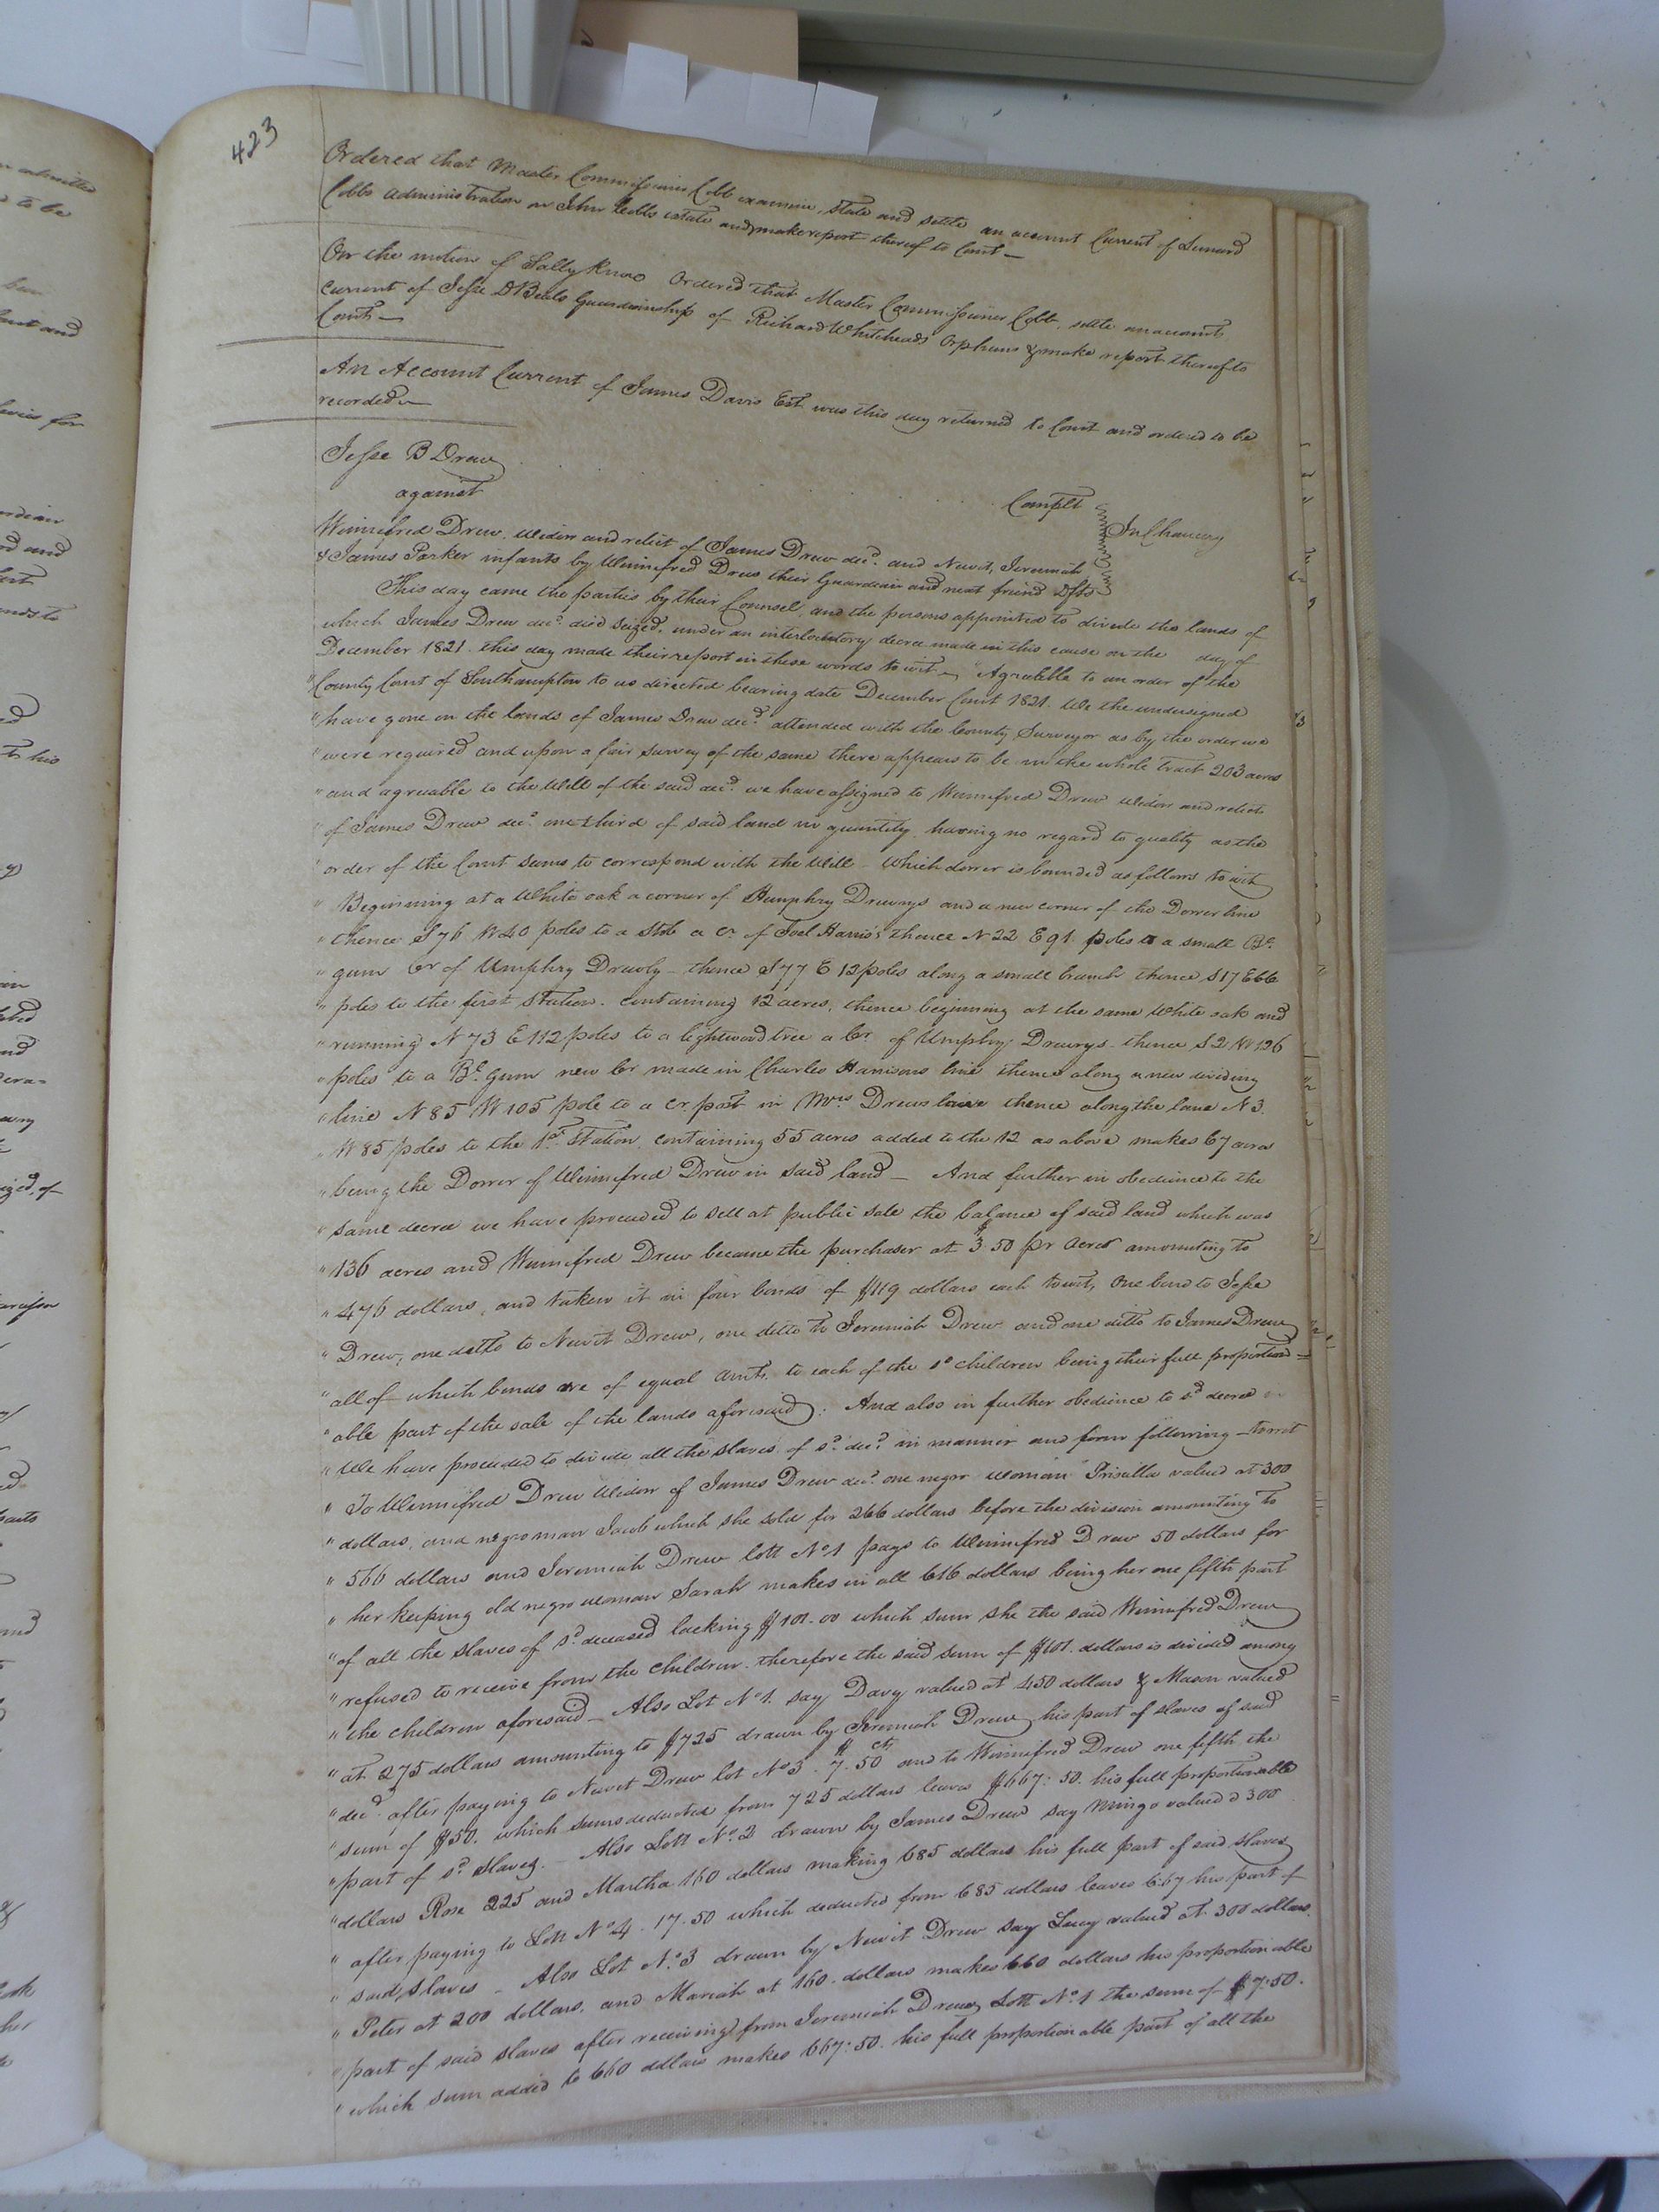 423
Ordered that Master Commissioner Cobb examine, state and settle an account Current of Lemuard
Cobbs administration on John Cobbs estate and make report thereof to Court —
On the motion of Sally Knox Ordered that Master Commissioner Cobb, settle an account
Current of Jesse D Beals Guardianship of Richard Whiteheads Orphans & make report thereof to
Court —
An Account Current of James Davis Est was this day returned to Court and ordered to be
recorded —
Jesse B Drew
Complt
against
In Chancery
Winnefred Drew, widow and relict of James Drew decd. and Newit, Jeremiah
& James Parker infants by Winnefred Drew their Guardian and next friend Dfts
This day came the parties by their Counsel, and the persons appointed to divide the lands of
which James Drew decd. died seized, under an interlocutory decree made in this cause on the day of
December 1821. this day made their report in these words to wit — "Agreable to an order of the
"County Court of Southampton to us directed bearing date December Court 1821. We the undersigned
"have gone on the lands of James Drew decd. attended with the County Surveyor as by the order we
"were required and upon a fair survey of the same there appears to be in the whole tract 203 acres
"and agreeable to the Will of the said decd. we have assigned to Winnifred Drew widow and relict
"of James Drew decd. one third of said land in quantity, having no regard to quality as the
"order of the Court seems to correspond with the Will – Which dower is bounded as follows to wit
"Beginning at a White oak a corner of Humphry Drewrys and a new corner of the Dower line
"thence S 76 W 40 poles to a Stob a Cr. of Joel Harris's thence N 22 E 91 poles to a small Bk.
"gum Cr of Umphry Drewry – thence S 77 E 12 poles along a small branch thence S 17 E 66
"poles to the first Station. containing 12 acres, thence beginning at the same White oak and
"running N 73 E 112 poles to a lightwood tree a Cr. of Umphry Drewrys – thence S 2 W 126
"poles to a Bk. Gum new Cr made in Charles Harrisons line thence along a new dividing
"line N 85 W 105 pole to a Cr post in Mrs Drews lane thence along the lane N 3.
"W 85 poles to the 1st Station, containing 55 acres added to the 12 as above makes 67 acres
"being the Dower of Winnefred Drew in said land — And further in obedience to the
"same decree we have proceeded to sell at public sale the balance of said land which was
"136 acres and Winnifred Drew became the purchaser at $3.50 pr acre amounting to
"476 dollars, and taken it in four bonds of $119 dollars each to wit, One bond to Jesse
"Drew, one ditto to Newit Drew, one ditto to Jeremiah Drew and one ditto to James Drew
"all of which bonds are of equal amts. to each of the sd children being their full proportion=
"able part of the sale of the lands aforesaid: And also in further obedience to sd decree
"We have proceeded to divide all the slaves of sd. decd. in manner and form following – to wit
"To Winnifred Drew Widow of James Drew decd. one negro woman Prisulla valued at 300
"dollars, and negro man Jacob which she sold for 266 dollars before the division amounting to
"566 dollars and Jeremiah Drew lott No 1 pays to Winnifred Drew 50 dollars for
"her keeping old negro woman Sarah makes in all 616 dollars being her one fifth part
"of all the slaves of sd. deceased lacking $101.00 which sum she the said Winnifred Drew
"refused to receive from the children. therefore the said sum of $101. dollars is divided among
"the children aforesaid — Also Lot No 1. say Davy valued at 450 dollars & Mason valued
"at 275 dollars amounting to $725 drawn by Jeremiah Drew his part of slaves of said
"decd. after paying to Newit Drew lot No 3. $7.50 cts and to Winnifred Drew one fifth the
"sum of $50. which sums deducted from 725 dollars leaves $667:50. his full proportionable
"part of sd slaves. — Also Lott No. 2 drawn by James Drew say Mingo valued @ 300
"dollars Rose 225 and Martha 160 dollars making 685 dollars his full part of said slaves
"after paying to Lott No 4. 17.50 which deducted from 685 dollars leaves 667 his part of
"said slaves – Also Lot No. 3 drawn by Newit Drew say Lucy valued at 300 dollars.
"Peter at 200 dollars. and Mariah at 160. dollars makes 660 dollars his proportionable
"part of said slaves after receiving from Jeremiah Drew Lott No. 1 the sum of $7:50.
"which sum added to 660 dollars makes 667:50. his full proportionable part of all the